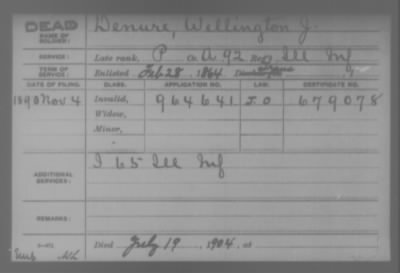 DEAD
NAME OF SOLDIER: Denure, Wellington J.
SERVICE: Late rank, P Co. A 92 Reg. Ill Inf
TERM OF SERVICE: Enlisted Feb 28, 1864
DATE OF FILING. CLASS. APPLICATION NO. LAW. CERTIFICATE NO.
1890 Nov 4 Invalid, 964641 J.O 679078
Widow,
Minor,
ADDITIONAL SERVICES: I 65 Ill Inf
REMARKS:
Died July 19, 1904, at